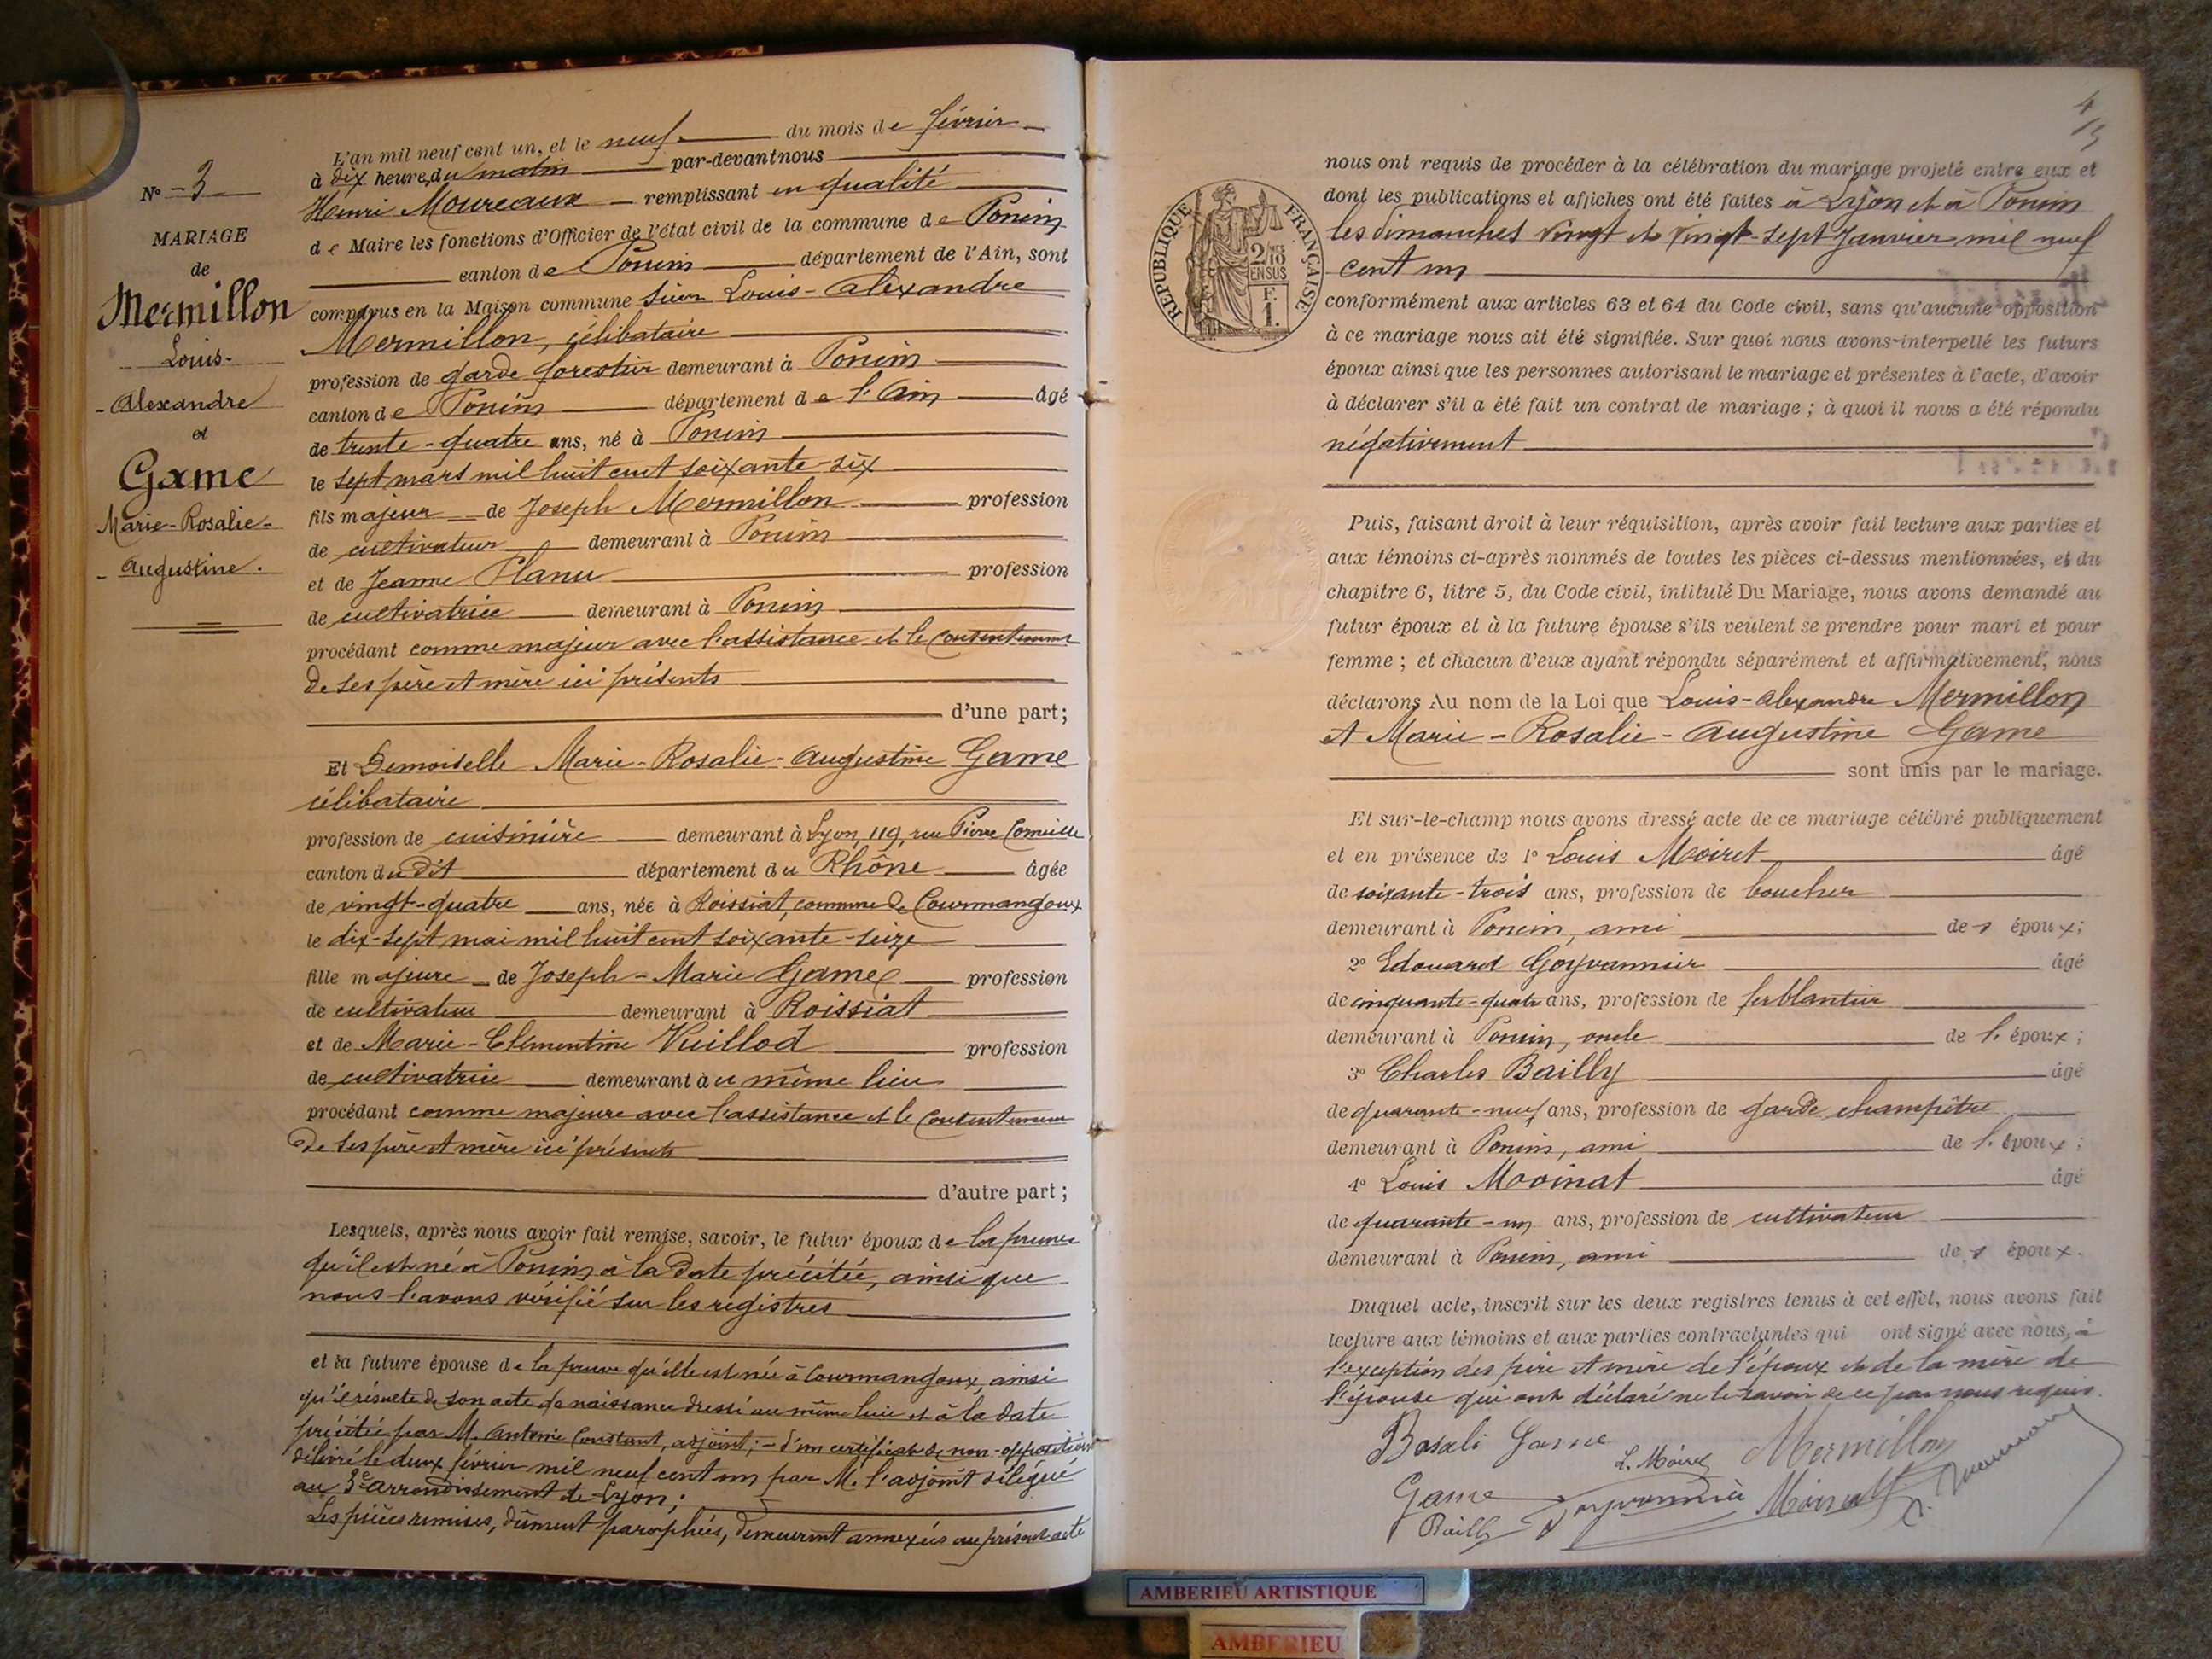 N° - 3 -
MARIAGE
de
Mermillon
Louis-
- Alexandre
et
Game
Marie-Rosalie-
- Augustine.
L'an mil neuf cent un, et le neuf du mois de février
à dix heures du matin par-devant nous
Henri Moureaux remplissant en qualité
de Maire les fonctions d'Officier de l'état civil de la commune de Poncin
canton de Poncin département de l'Ain, sont
comparus en la Maison commune sieur Louis-Alexandre
Mermillon, célibataire
profession de garde forestier demeurant à Poncin
canton de Poncin département de l'Ain âgé
de trente-quatre ans, né à Poncin
le sept mars mil huit cent soixante-six
fils majeur de Joseph Mermillon profession
de cultivateur demeurant à Poncin
et de Jeanne profession
de cultivatrice demeurant à Poncin
procédant comme majeur avec l'assistance et le consentement
de ses père et mère ici présents
d'une part;
Et Demoiselle Marie-Rosalie-Augustine Game
célibataire
profession de cuisinière demeurant à Lyon, 119, rue Pierre Corneille
canton du dit département du Rhône âgée
de vingt-quatre ans, née à Roissiat, commune de Courmangoux
le dix-sept mai mil huit cent soixante-seize
fille majeure de Joseph-Marie Game profession
de cultivateur demeurant à Roissiat
et de Marie-Clémentine Vuillod profession
de cultivatrice demeurant au même lieu
procédant comme majeure avec l'assistance et le consentement
de ses père et mère ici présents
d'autre part;
Lesquels, après nous avoir fait remise, savoir, le futur époux de la preuve
qu'il est né à Poncin à la date précitée, ainsi que
nous l'avons vérifié sur les registres
et la future épouse de la preuve qu'elle est née à Courmangoux, ainsi
qu'il résulte de son acte de naissance dressé au même lieu et à la date
précitée par M. Antoine Constant, adjoint; - d'un certificat de non-opposition
délivré le deux février mil neuf cent un par M. l'adjoint délégué
au 3e arrondissement de Lyon;
Les pièces remises, dûment paraphées, demeurent annexées au présent acte
4
REPUBLIQUE FRANÇAISE
2/10 EN SUS
F.
1.
nous ont requis de procéder à la célébration du mariage projeté entre eux et
dont les publications et affiches ont été faites à Lyon et à Poncin
les dimanches vingt et vingt-sept Janvier mil neuf
cent un
conformément aux articles 63 et 64 du Code civil, sans qu'aucune opposition
à ce mariage nous ait été signifiée. Sur quoi nous avons interpellé les futurs
époux ainsi que les personnes autorisant le mariage et présentes à l'acte, d'avoir
à déclarer s'il a été fait un contrat de mariage; à quoi il nous a été répondu
négativement
Puis, faisant droit à leur réquisition, après avoir fait lecture aux parties et
aux témoins ci-après nommés de toutes les pièces ci-dessus mentionnées, et du
chapitre 6, titre 5, du Code civil, intitulé Du Mariage, nous avons demandé au
futur époux et à la future épouse s'ils veulent se prendre pour mari et pour
femme; et chacun d'eux ayant répondu séparément et affirmativement, nous
déclarons Au nom de la Loi que Louis-Alexandre Mermillon
et Marie-Rosalie-Augustine Game
sont unis par le mariage.
Et sur-le-champ nous avons dressé acte de ce mariage célébré publiquement
et en présence de 1° Louis Moiret âgé
de soixante-trois ans, profession de boucher
demeurant à Poncin, ami des époux;
2° Edouard Goyvannier âgé
de cinquante-quatre ans, profession de ferblantier
demeurant à Poncin, oncle de l'époux;
3° Charles Bailly âgé
de quarante-neuf ans, profession de garde champêtre
demeurant à Poncin, ami de l'époux;
4° Louis Moinat âgé
de quarante-un ans, profession de cultivateur
demeurant à Poncin, ami des époux.
Duquel acte, inscrit sur les deux registres tenus à cet effet, nous avons fait
lecture aux témoins et aux parties contractantes qui ont signé avec nous, à
l'exception des père et mère de l'époux et de la mère de
l'épouse qui ont déclaré ne le savoir de ce par nous requis.
Game
L. Moiret
Mermillon
Game
Bailly
AMBERIEU ARTISTIQUE
AMBERIEU